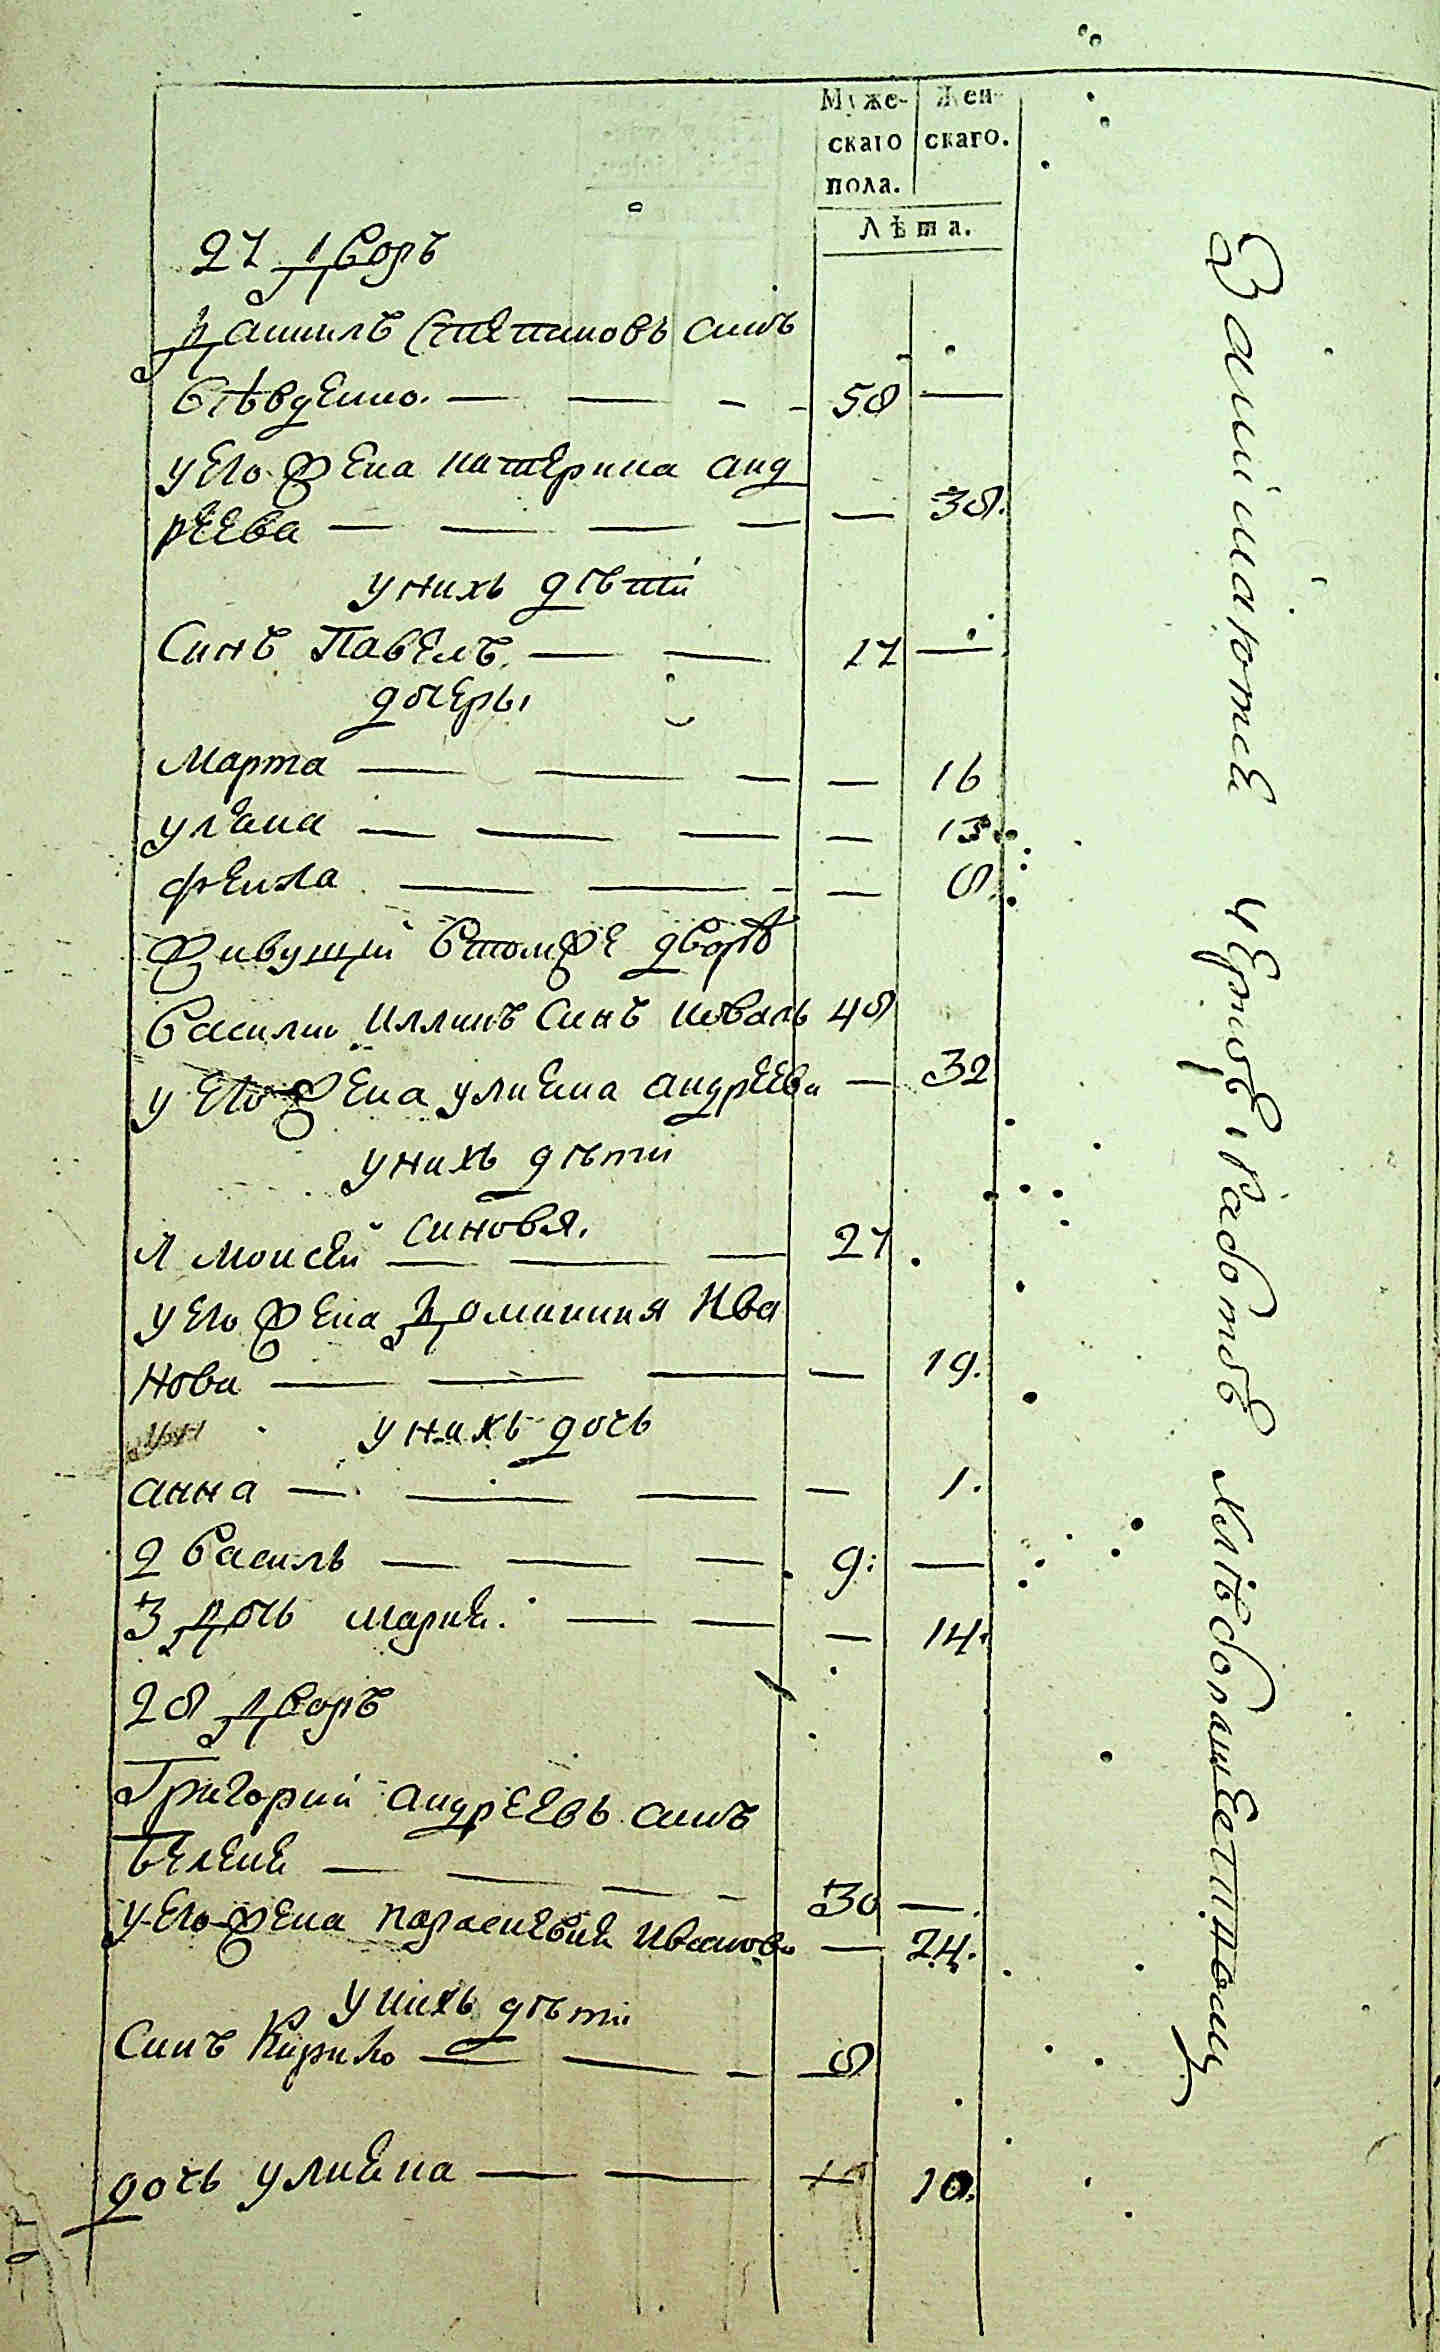 Муже- Жен-
скаго скаго.
пола.
Лѣта.
27 Дворъ
Данилъ Степановъ синъ
58 —
у его жена катерина анд
рѣева — 38.
у нихъ дѣти
Синъ Павелъ 17 —
дочеры
Марта — 16
уляна — 13
фекла — 8
живущій втомже дворѣ
Василий Иллинъ Синъ коваль 48
у его жена улияна андрѣева — 32
у нихъ дѣти
синовя.
1 Моисей 27
у его жена Домникия Ива
нова — 19.
у нихъ дочь
анна — 1.
2 Василь 9: —
3 Дочь мария. — 14.
28 Дворъ
Григорий андрѣевъ синъ
30 —
у его жена параскевия иванова — 24.
у нихъ дѣти
Синъ Кирило 8
дочь улияна 10.
Занимаются чернѣ работѣ хлѣбопашествомъ